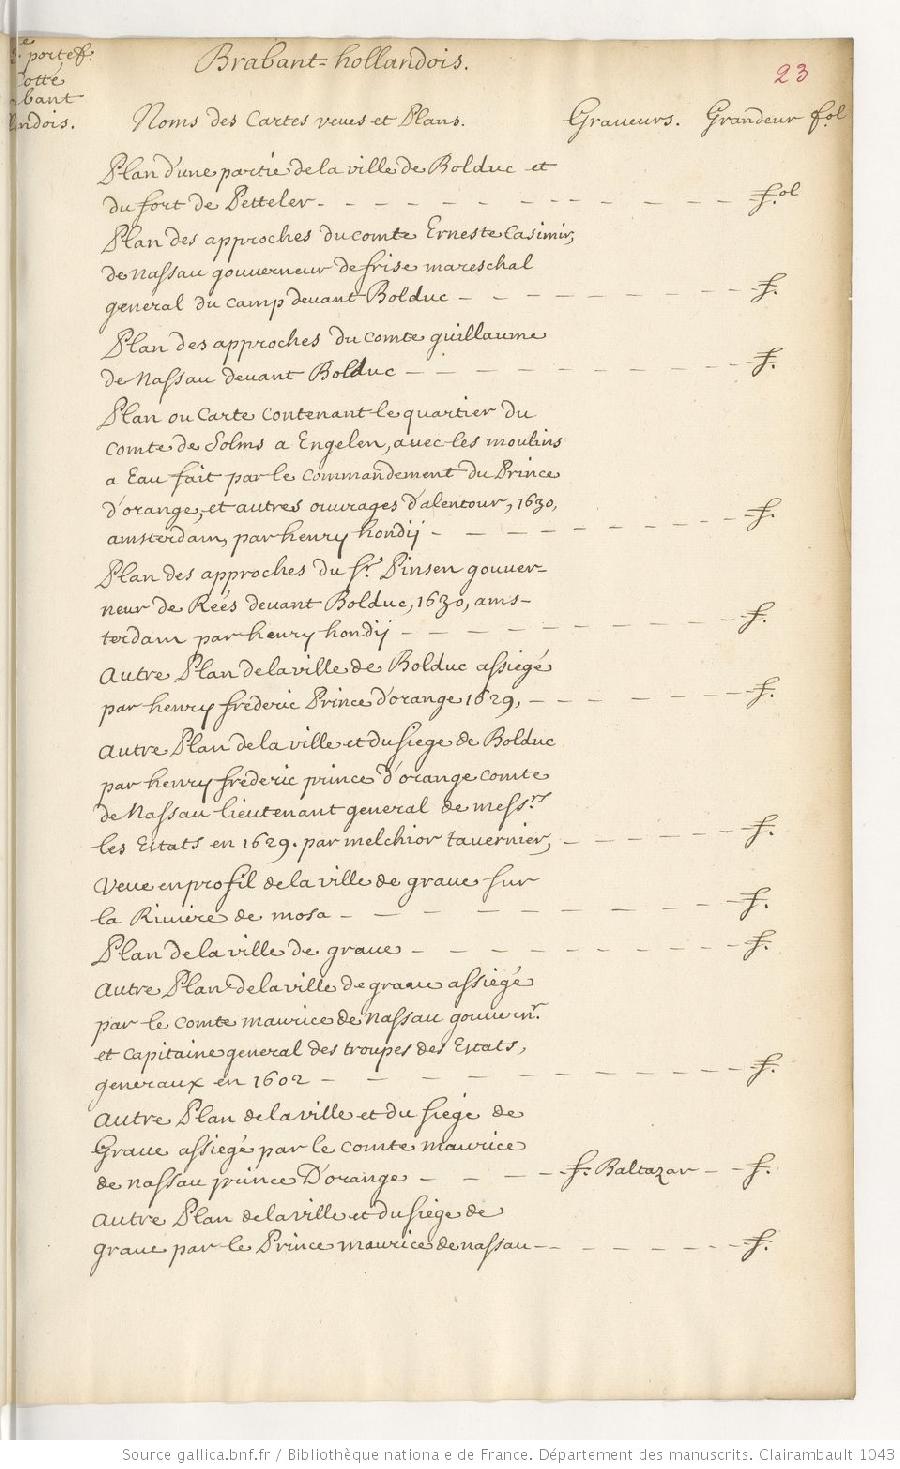 Brabant=hollandois.
23
portef.
cotté
bant
ndois.
Noms des Cartes veues et Plans. Graveurs. Grandeur fol
Plan d'une partie de la ville de Bolduc et
du fort de Petteler - - - - - - - - - - fol
Plan des approches du comte Erneste Casimir,
de Nassau gouverneur de frise mareschal
general du camp devant Bolduc - - - - - - - f.
Plan des approches du comte guillaume
de Nassau devant Bolduc - - - - - - - - f.
Plan ou Carte contenant le quartier du
comte de Solms a Engelen, avec les moulins
a Eau fait par le commandement du Prince
d'orange, et autres ouvrages d'alentour, 1630,
amsterdam, par henry hondij - - - - - - - f.
Plan des approches du Sr. Pinsen gouver-
neur de Reés devant Bolduc, 1630, ams-
terdam par henry hondij - - - - - - - - f.
autre Plan de la ville de Bolduc assiegé
par henry fréderic Prince d'orange 1629, - - - - - - f.
autre Plan de la ville et du siege de Bolduc
par henry fréderic prince d'orange comte
de Nassau lieutenant general de messrs
les Estats en 1629. par melchior tavernier, - - - - - f.
Veue en profil de la ville de grave sur
la Riviere de mosa - - - - - - - - - f.
Plan de la ville de grave - - - - - - - - f.
autre Plan de la ville de grave assiegé
par le comte maurice de nassau gouvern.r
et capitaine general des troupes des Estats,
generaux en 1602 - - - - - - - - - f.
autre Plan de la ville et du siege de
Grave assiegé par le comte maurice
de nassau prince D'orange - - - - f. Baltazar - - f.
autre Plan de la ville et du siege de
grave par le Prince maurice de nassau - - - - - - f.
Source gallica.bnf.fr / Bibliothèque nationale de France. Département des manuscrits. Clairambault 1043